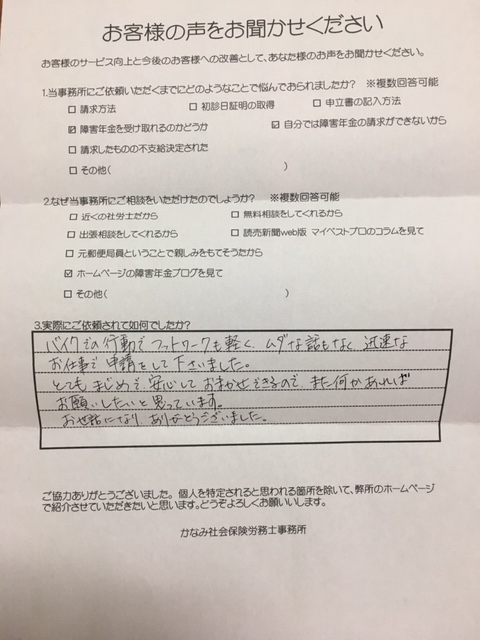 お客様の声をお聞かせください
お客様のサービス向上と今後のお客様への改善として、あなた様のお声をお聞かせください。
1.当事務所にご依頼いただくまでにどのようなことで悩んでおられましたか? ※複数回答可能
□ 請求方法 □ 初診日証明の取得 □ 申立書の記入方法
☑ 障害年金を受け取れるのかどうか ☑ 自分では障害年金の請求ができないから
□ 請求したものの不支給決定された
□ その他( )
2.なぜ当事務所にご相談をいただけたのでしょうか? ※複数回答可能
□ 近くの社労士だから □ 無料相談をしてくれるから
□ 出張相談をしてくれるから □ 読売新聞web版 マイベストプロのコラムを見て
□ 元郵便局員ということで親しみをもてそうだから
☑ ホームページの障害年金ブログを見て
□ その他( )
3.実際にご依頼されて如何でしたか?
バイクでの行動でフットワークも軽く、ムダな話もなく、迅速な
お仕事で申請をして下さいました。
とてもまじめで、安心しておまかせできるので、また何かあれば
お願いしたいと思っています。
お世話になり、ありがとうございました。
ご協力ありがとうございました。個人を特定されると思われる箇所を除いて、弊所のホームページ
で紹介させていただきたいと思います。どうぞよろしくお願いいします。
かなみ社会保険労務士事務所